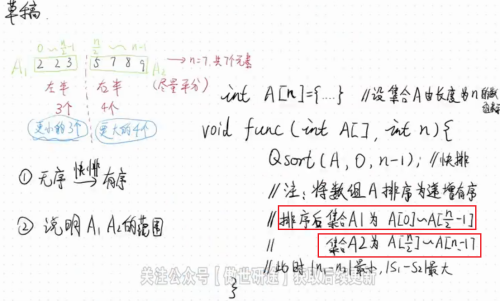 草稿.
0 ~ n/2-1 n/2 ~ n-1
A₁ 2 2 3 5 7 8 9 A₂ → n=7, 共7个元素
左半 右半 (尽量平分)
3个 4个
更小的3个 更大的4个
① 无序 快排→ 有序
② 说明A₁A₂的范围
int A[n]={...} //设集合A由长度为n的数组表示
void func(int A[], int n){
Qsort(A, 0, n-1); //快排
//注: 将数组A排序为递增有序
//排序后集合A1为 A[0]~A[n/2-1]
// 集合A2为 A[n/2]~A[n-1]
//此时|n₁-n₂|最小, |S₁-S₂|最大
}